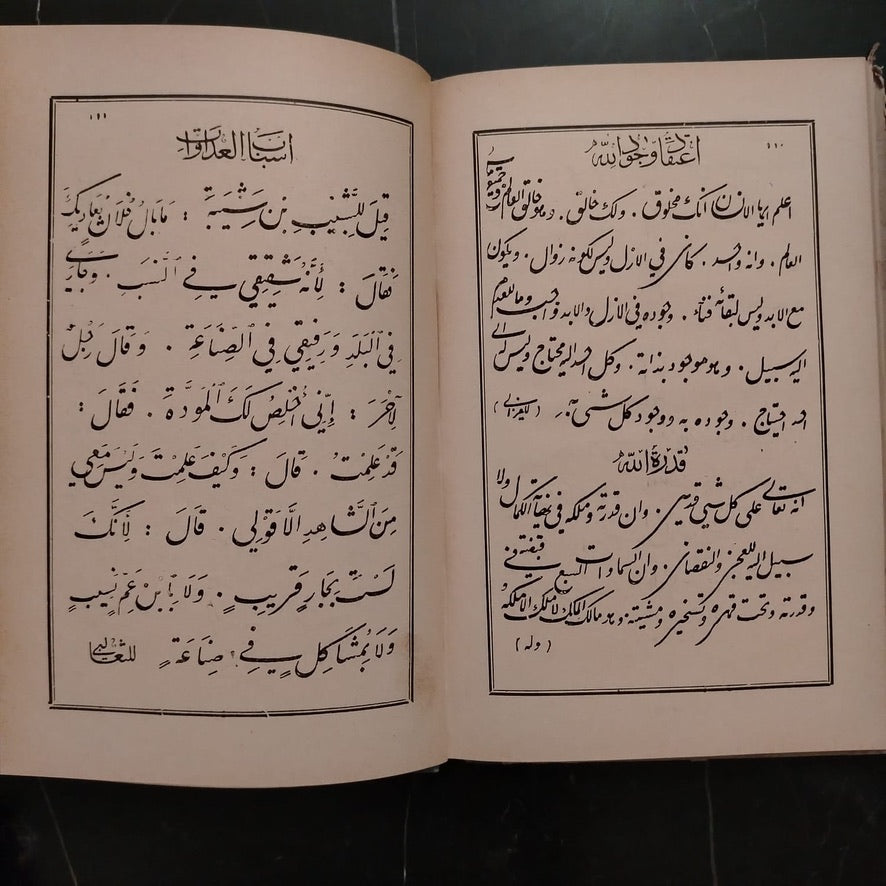 ١١٠
اعتقاد وجود الله
اعلم ايها الانسان انك مخلوق . ولك خالق . وهو خالق العالم وجميع ما في
العالم . وانه واحد . كان في الازل وليس لكونه زوال . ويكون
مع الابد وليس لبقائه فناء . وجوده في الازل والابد واجب وما للعدم
اليه سبيل . وهو موجود بذاته . وكل احد اليه محتاج وليس له الى
احد احتياج . وجوده به ووجود كل شيء به . (للغزالي)
قدرة الله
انه تعالى على كل شيء قدير . وان قدرته وملكه في نهاية الكمال ولا
سبيل اليه للعجز والنقصان . وان السماوات السبع في قبضته
وقدرته وتحت قهره وتسخيره ومشيئته وهو مالك الملك لا ملك الا ملكه
(وله)
١١١
اسباب العداوات
قِيلَ لِلشَّبِيبِ بْنِ شَيْبَةَ : مَا بَالُ فُلَانٍ يُعَادِيكَ
فَقَالَ : لِأَنَّهُ شَقِيقِي فِي ٱلنَّسَبِ . وَجَارِي
فِي ٱلْبَلَدِ وَرَفِيقِي فِي ٱلصِّنَاعَةِ . وَقَالَ رَجُلٌ
لِآخَرَ : إِنِّي أُخْلِصُ لَكَ ٱلْمَوَدَّةَ . فَقَالَ :
قَدْ عَلِمْتُ . قَالَ : وَكَيْفَ عَلِمْتَ وَلَيْسَ مَعِي
مِنَ ٱلشَّاهِدِ إِلَّا قَوْلِي . قَالَ : لِأَنَّكَ
لَسْتَ بِجَارٍ قَرِيبٍ . وَلَا بِٱبْنِ عَمٍّ نَسِيبٍ
وَلَا بِمُشَاكِلٍ فِي صِنَاعَةٍ للثعالبي